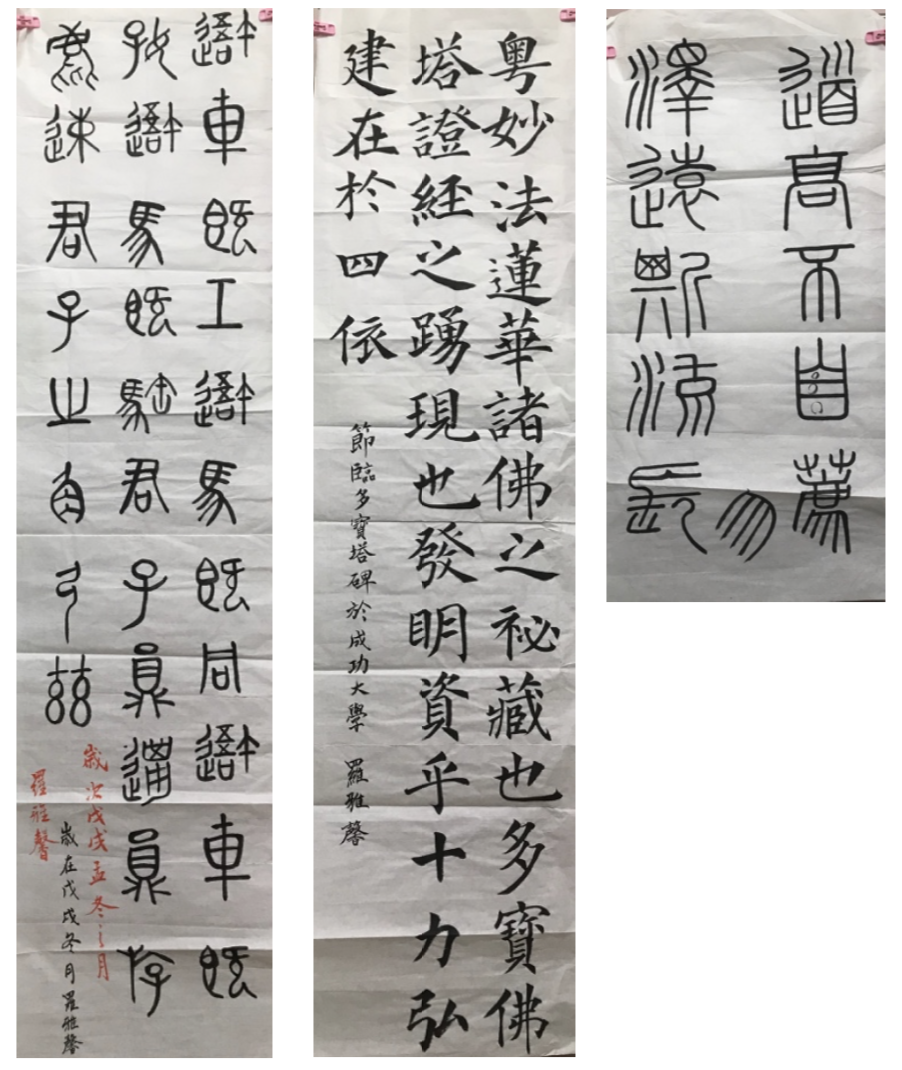 吾車既工吾馬既同吾車既
好吾馬既駐君子員邋員斿
麀速君子之角弓兹
歲次戊戌孟冬之月
羅雅馨
歲在戊戌冬月羅雅馨
粵妙法蓮華諸佛之祕藏也多寶佛
塔證經之踴現也發明資乎十力弘
建在於四依
節臨多寶塔碑於成功大學 羅雅馨
道高不自薦
勿
澤遠斯流長